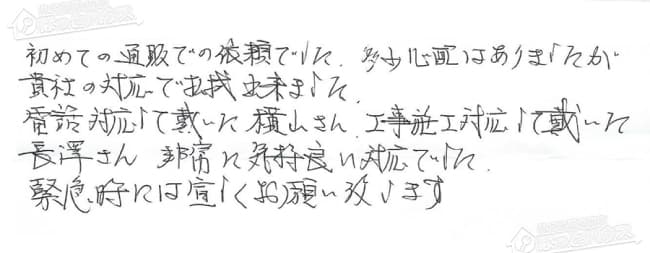 初めての通販での依頼でした。多少心配はありましたが
貴社の対応で払拭出来ました。
電話対応して戴いた横山さん、工事施工対応して戴いた
長澤さん 非常に気持良い対応でした。
緊急時には宜しくお願い致します